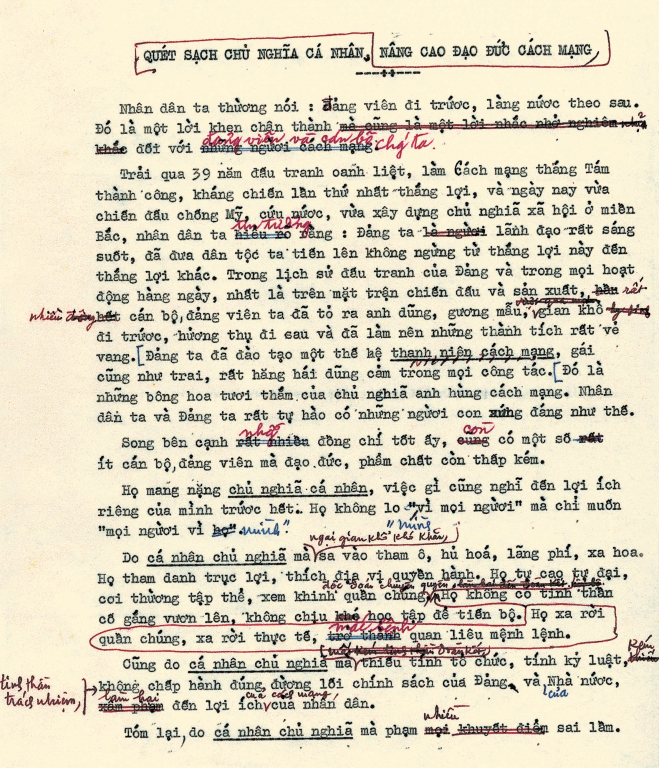 QUÉT SẠCH CHỦ NGHĨA CÁ NHÂN, NÂNG CAO ĐẠO ĐỨC CÁCH MẠNG
Nhân dân ta thường nói : đảng viên đi trước, làng nước theo sau.
Đó là một lời khen chân thành mà cũng là một lời nhắc nhở nghiêm
đảng viên và cán bộ chúng ta.
khắc đối với những người cách mạng.
Trải qua 39 năm đấu tranh oanh liệt, làm Cách mạng tháng Tám
thành công, kháng chiến lần thứ nhất thắng lợi, và ngày nay vừa
chiến đấu chống Mỹ, cứu nước, vừa xây dựng chủ nghĩa xã hội ở miền
tin tưởng
Bắc, nhân dân ta hiểu rõ rằng : Đảng ta là người lãnh đạo rất sáng
suốt, đã đưa dân tộc ta tiến lên không ngừng từ thắng lợi này đến
thắng lợi khác. Trong lịch sử đấu tranh của Đảng và trong mọi hoạt
động hàng ngày, nhất là trên mặt trận chiến đấu và sản xuất, hầu rất
nhiều hết cán bộ, đảng viên ta đã tỏ ra anh dũng, gương mẫu, gian khổ
đi trước, hưởng thụ đi sau và đã làm nên những thành tích rất vẻ
vang. [Đảng ta đã đào tạo một thế hệ thanh niên cách mạng, gái
cũng như trai, rất hăng hái dũng cảm trong mọi công tác. [Đó là
những bông hoa tươi thắm của chủ nghĩa anh hùng cách mạng. Nhân
dân ta và Đảng ta rất tự hào có những người con xứng đáng như thế.
còn
Song bên cạnh rất nhiều đồng chí tốt ấy, cũng có một số rất
ít cán bộ, đảng viên mà đạo đức, phẩm chất còn thấp kém.
Họ mang nặng chủ nghĩa cá nhân, việc gì cũng nghĩ đến lợi ích
riêng của mình trước hết. Họ không lo "vì mọi người" mà chỉ muốn
"mình
"mọi người vì họ" mình".
ngại gian khổ khó khăn,
Do cá nhân chủ nghĩa mà sa vào tham ô, hủ hoá, lãng phí, xa hoa.
Họ tham danh trục lợi, thích địa vị quyền hành. Họ tự cao tự đại,
độc đoán chuyên quyền
coi thường tập thể, xem khinh quần chúng, Họ không có tinh thần
cố gắng vươn lên, không chịu khó học tập để tiến bộ. Họ xa rời
mắc bệnh
quần chúng, xa rời thực tế, trở thành quan liêu mệnh lệnh.
Cũng do cá nhân chủ nghĩa mà thiếu tính tổ chức, tính kỷ luật, kém
tinh thần trách nhiệm, không chấp hành đúng đường lối chính sách của Đảng và Nhà nước,
của
làm hại của cách mạng,
xâm phạm đến lợi ích của nhân dân.
nhiều
Tóm lại, do cá nhân chủ nghĩa mà phạm mọi khuyết điểm sai lầm.